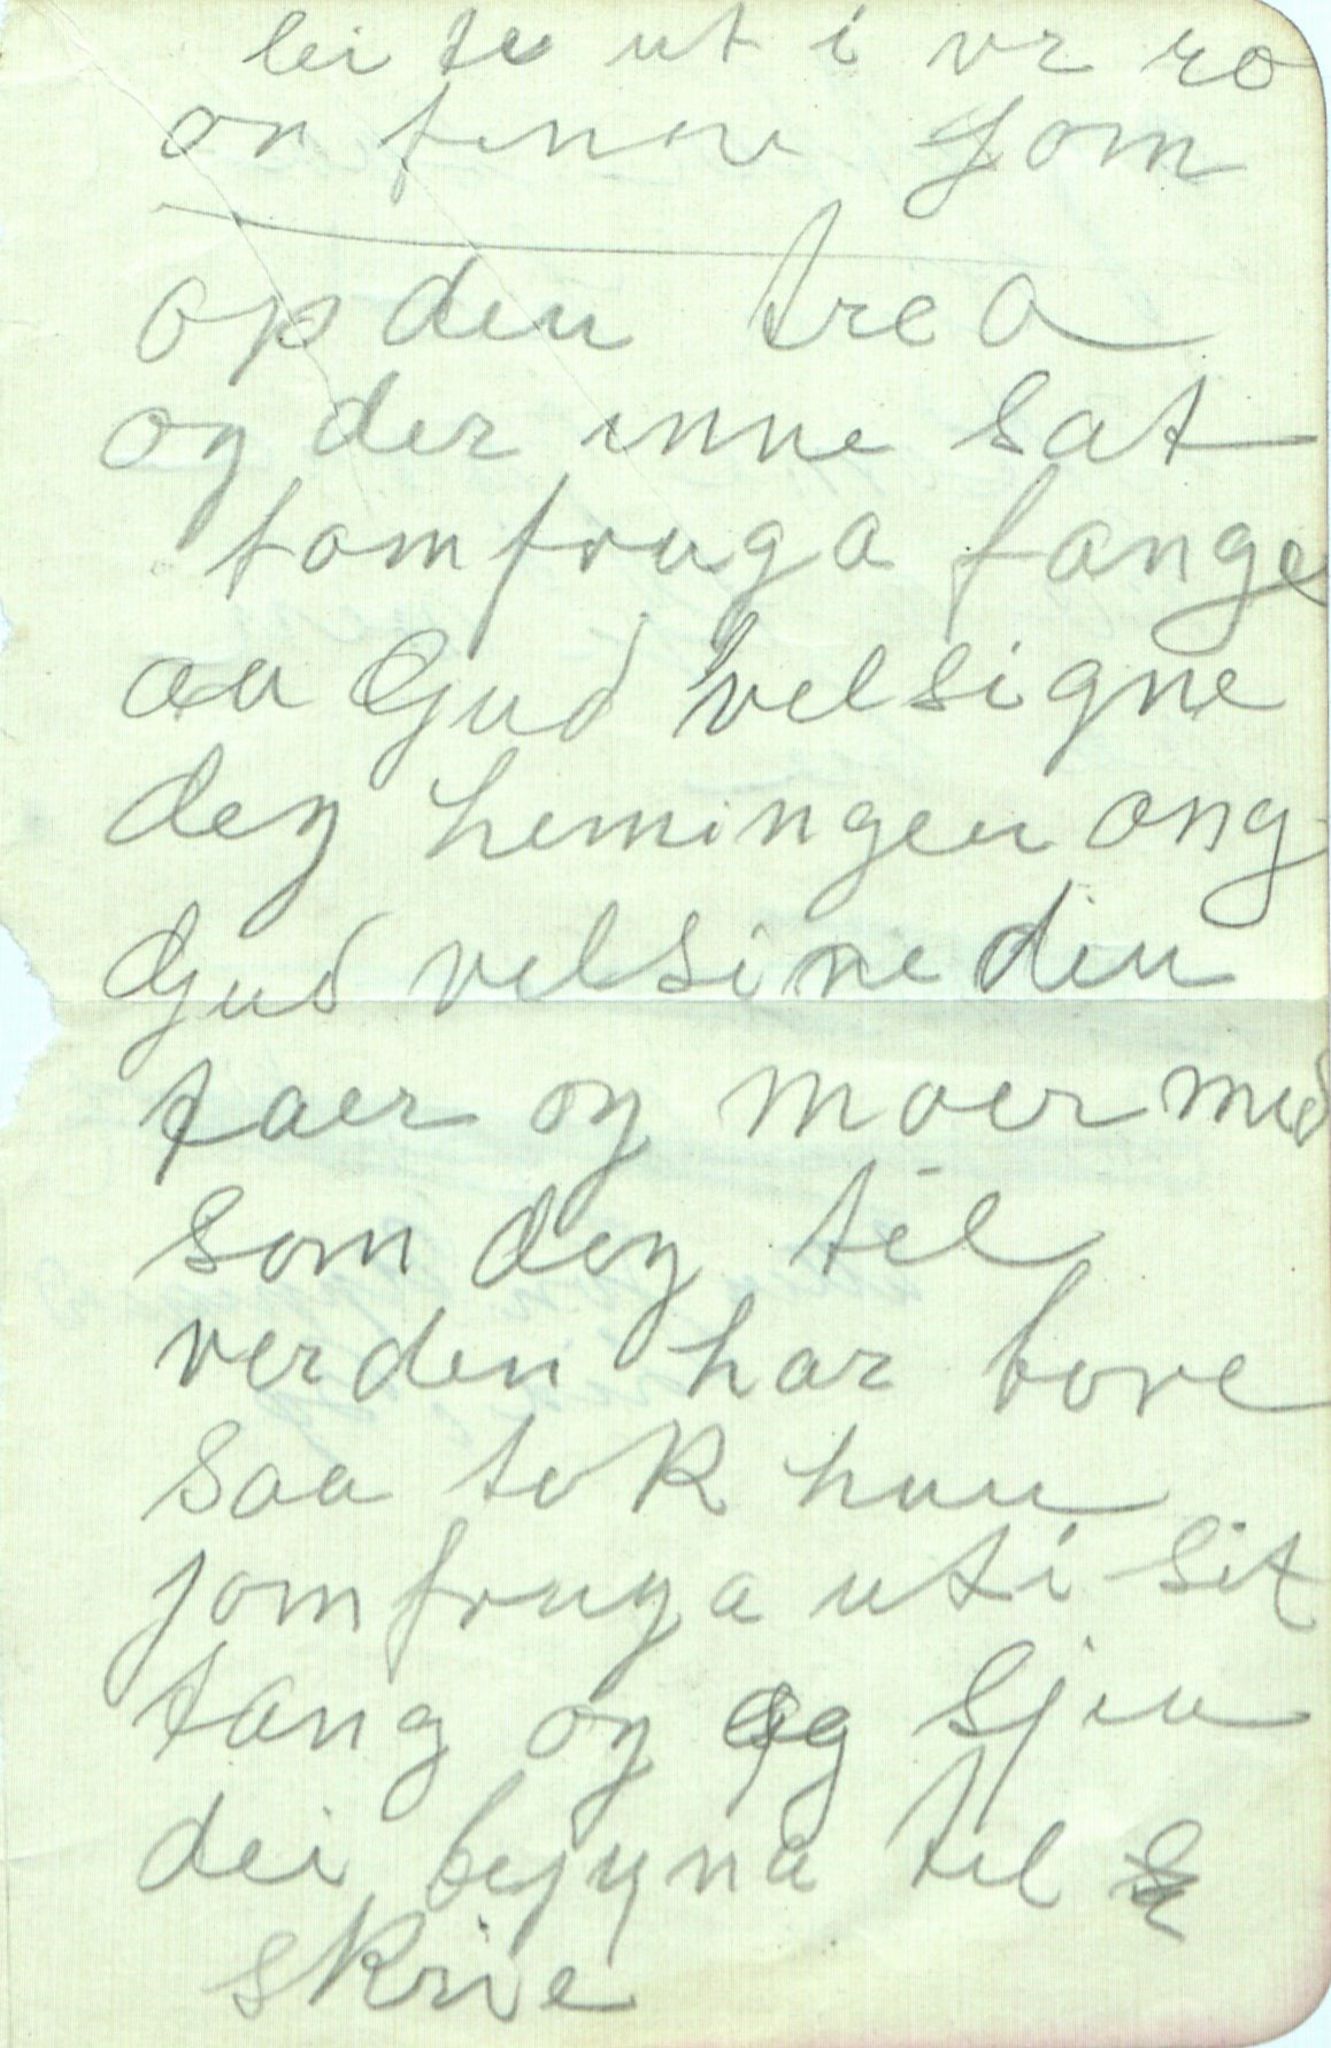 lei te ut i vr ro
on finne Jom
op den trea
og der inne sat
tomfruga fange
aa Gud velsigne
deg hemingen ong
Gud velsine den
faer og moer med
som deg til
verden har bore
saa tok hun
jomfruga uti sit
fang og og sjin
dei bejyna til
skrie